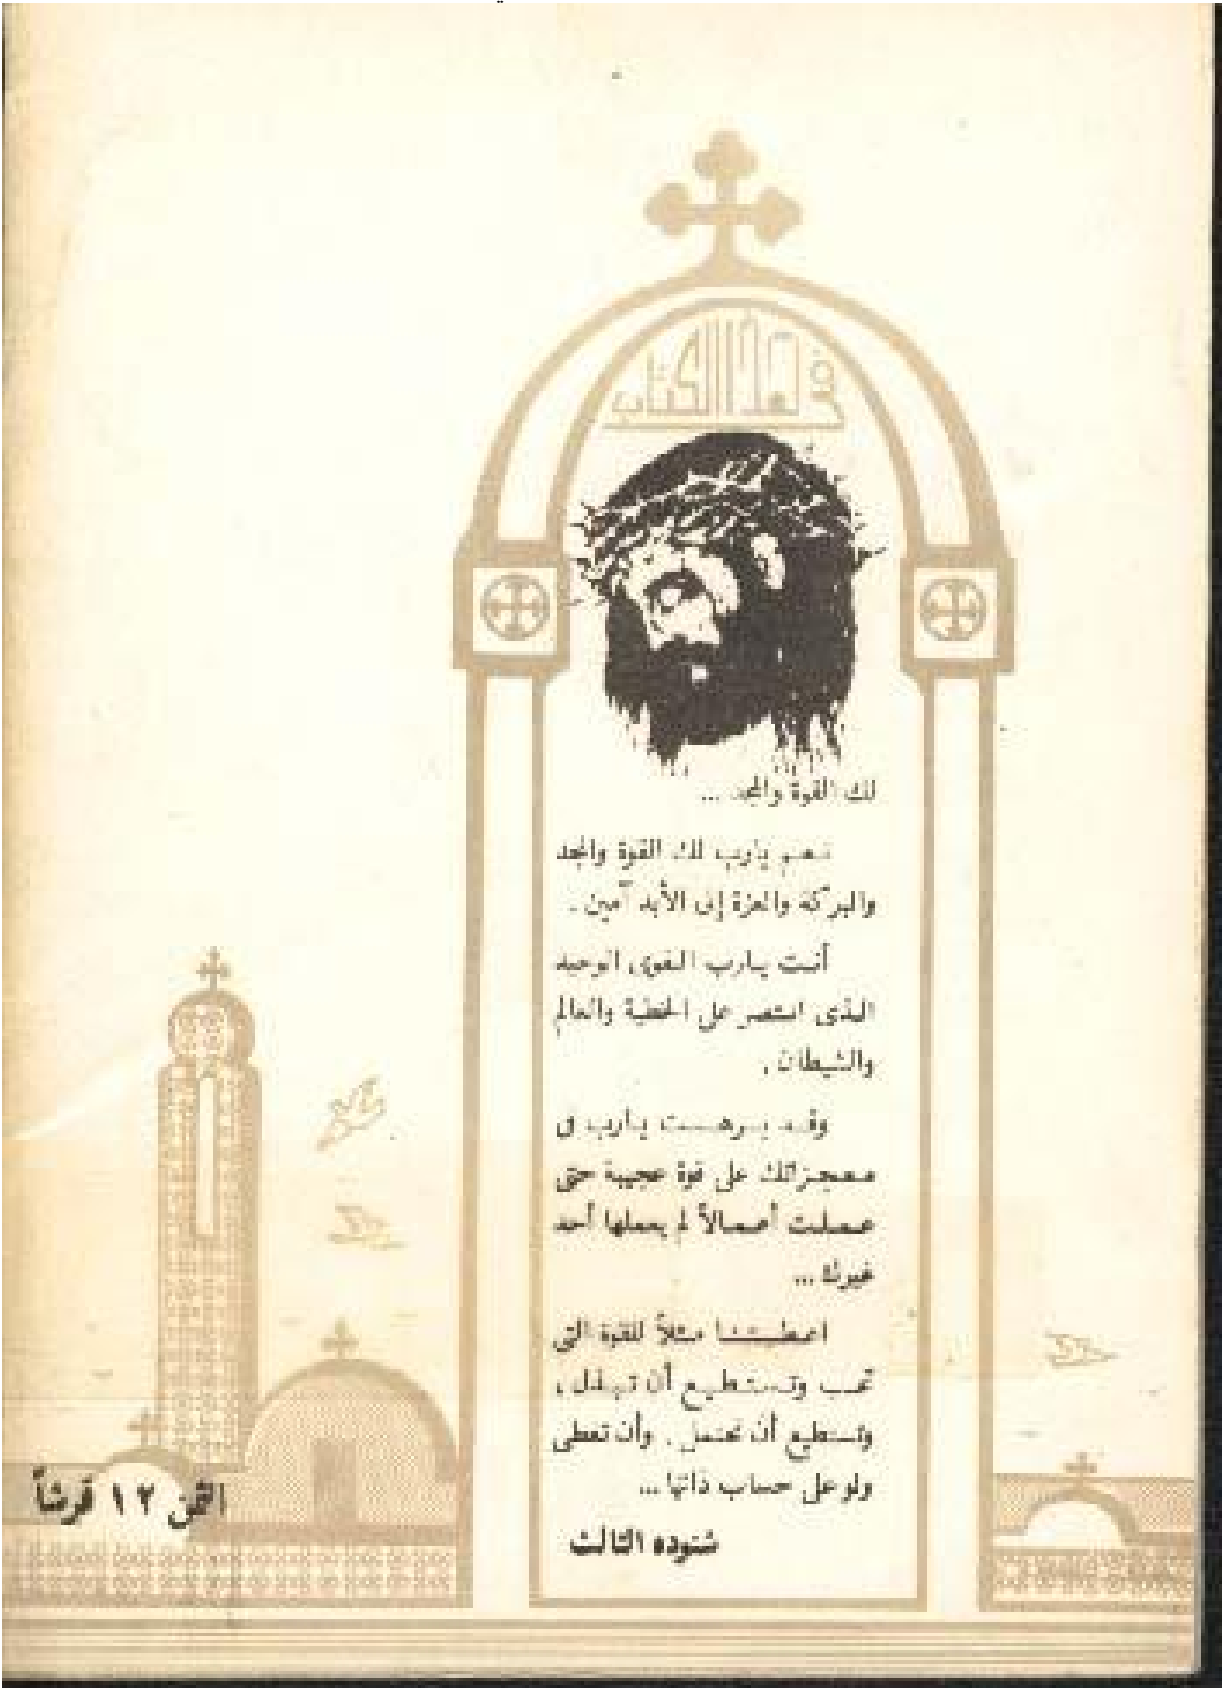 في هذا الكتاب
لك القوة والمجد ...
نعم يارب لك القوة والمجد
والبركة والعزة إلى الأبد آمين .
أنت يارب القوى الوحيد
الذى انتصر على الخطية والعالم
والشيطان .
وقد برهنت يارب فى
معجزاتك على قوة عجيبة حتى
عملت أعمالاً لم يعملها أحد
غيرك ...
اعطيتنا مثلاً للقوة التى
تحب وتستطيع أن تبذل ،
وتستطيع أن تحتمل . وأن تعطى
ولو على حساب ذاتها ...
شنوده الثالث
الثمن ١٢ قرشاً